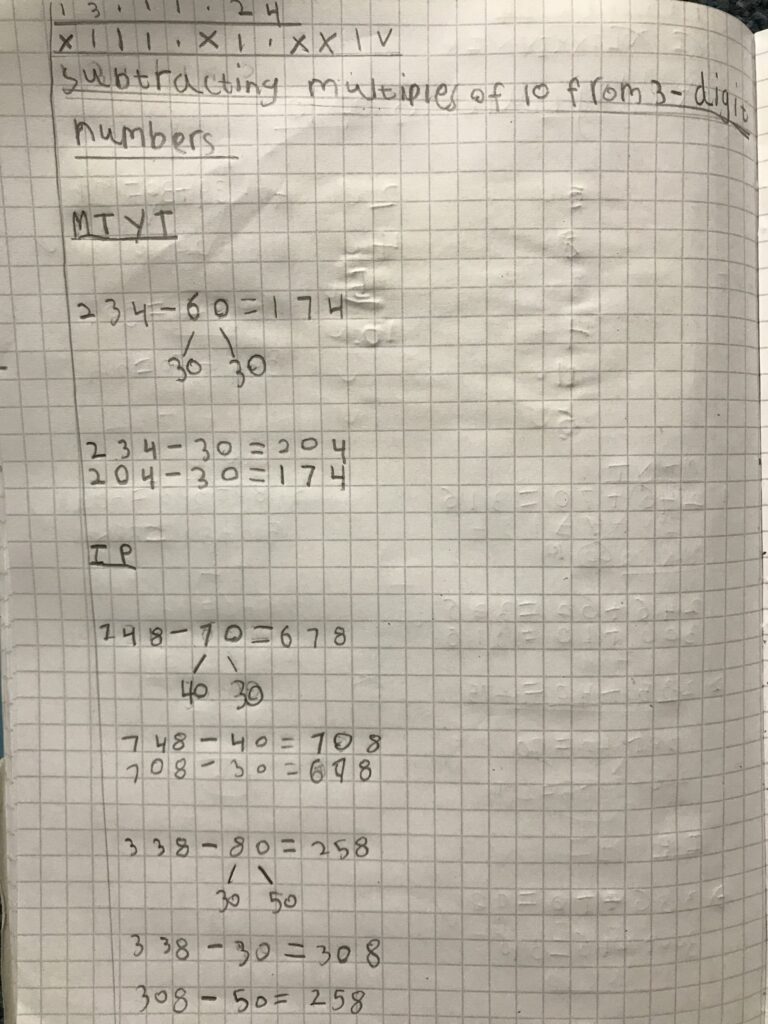 13.11.24
XIII.XI.XXIV
Subtracting multiples of 10 from 3-digit
numbers
MTYT
234-60=174
= 30 30
234-30=204
204-30=174
IP
748-70=678
40 30
748-40=708
708-30=678
338-80=258
30 50
338-30=308
308-50=258